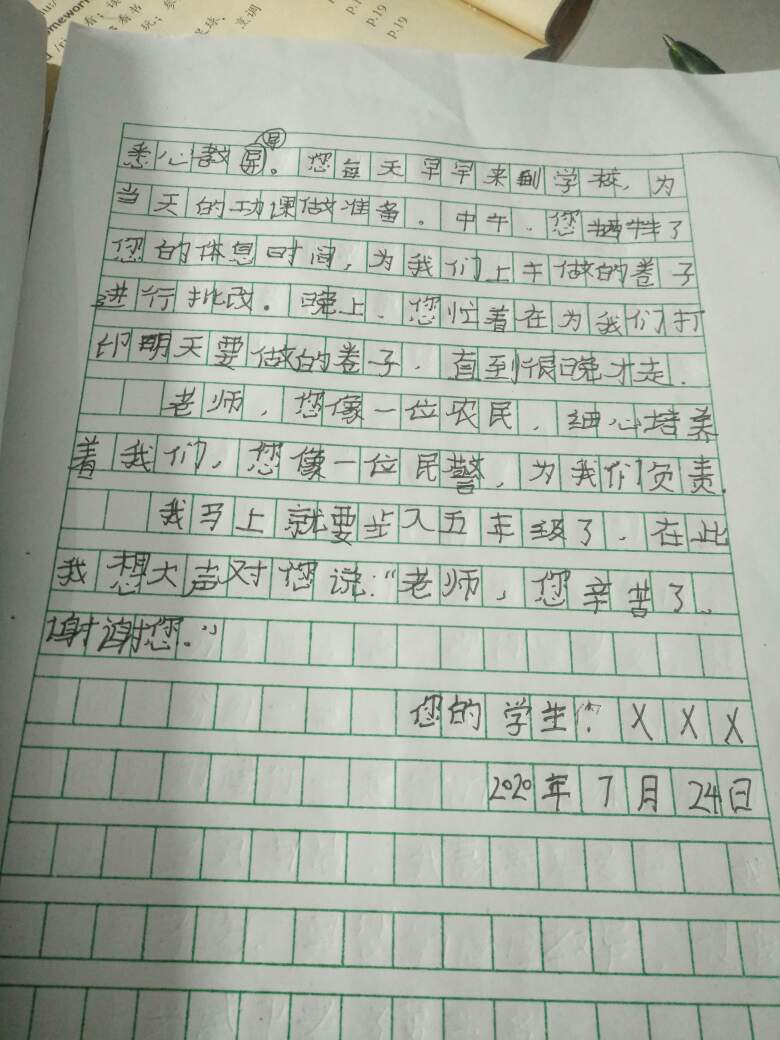 mework
p.19
p.19
p.19
烹调
悉心教导。您每天早早来到学校，为
当天的功课做准备。中午，您牺牲了
您的休息时间，为我们上午做的卷子
进行批改。晚上，您忙着在为我们打
印明天要做的卷子，直到很晚才走.
老师，您像一位农民，细心培养
着我们，您像一位民警，为我们负责.
我马上就要步入五年级了，在此
我想大声对您说：“老师，您辛苦了，
谢谢您.”
您的学生：X X X
2020年7月24日